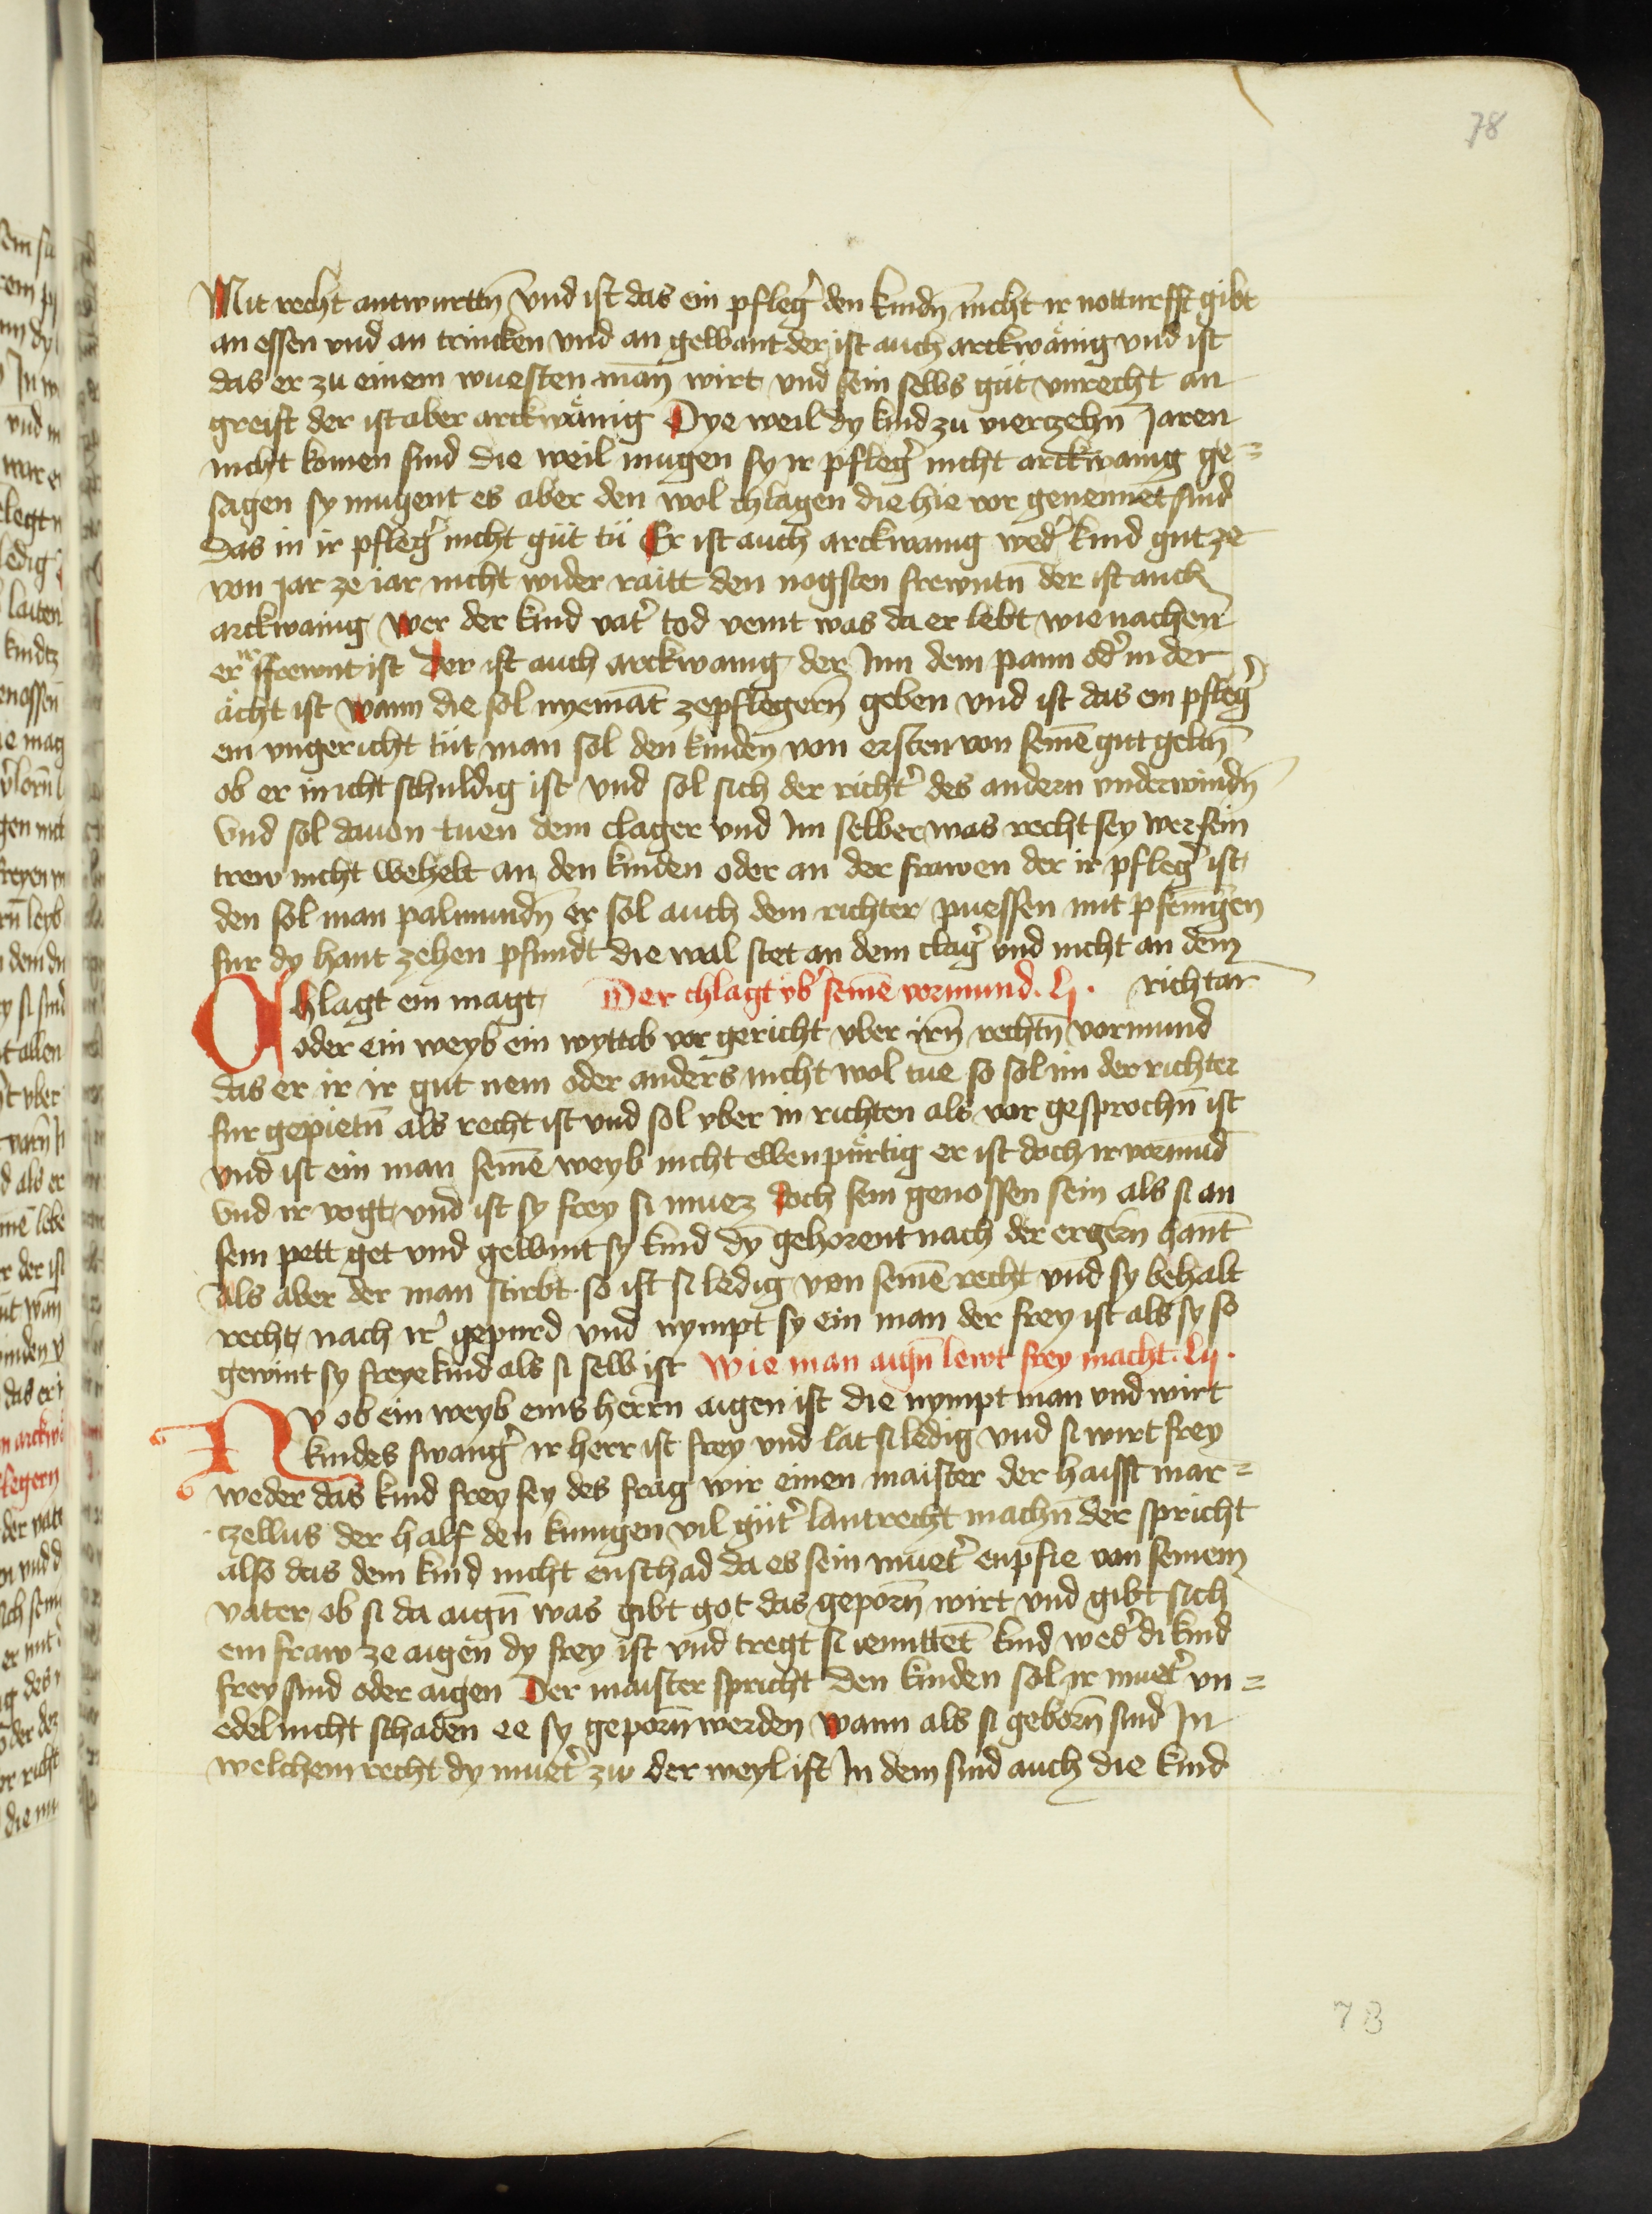 78
Mit recht antwurttn̄ Vnd ist das ein pfleg̾ den kindn̄ nicht ir notturfft gibt
an essen vnd an trincken vnd an gewant der ist auch arckwänig vnd ist
das er zu einem wuesten man̄ wirt vnd sein selbs güt vnrecht an
greift der ist aber arckwänig Dye weil dy kind zu vierzehn̄ Jaren
nicht komen sind die weil mugen sy ir pfleg̾ nicht arckwanig ge=
sagen sy mugent es aber den wol chlagen die hie vor genennet sind
Das in ir pfleg̾ nicht güt tü Er ist auch arckwanig wed̾ kind gut ze
von jar ze iar nicht wider raitt den nogsten frewntn̄ der ist auch
arckwanig wer der kind vat̾ tod vemt was da er lebt wie nachen
er ffrewnt ist Der ist auch arckwanig der Inn dem pann od̾ in der
ächt ist wann die sol nyemāt ze pflegern̄ geben vnd ist das ein pfleg̾
ein vngericht tüt man sol den kinden von ersten von seinē gut geltn̄
ob er in icht schuldig ist vnd sol sich der richt̾ des andern vnderwindn̄
Vnd sol dauon tuen dem clager vnd Im selber was recht sey wer sein
trew nicht wehelt an den kinden oder an der frawen der ir pfleg̾ ist
den sol man palmundn̄ er sol auch dem richter puessen mit pfenīgen
fur dy hant zehen pfundt die wal stet an dem clag̾ vnd nicht an dem
richtar
Chlagt ein magt Der chlagt vb̾ seinē vormund . Lj .
oder ein weyb ein wyttib vor gericht vber irn̄ rechtn̄ vormund
das er ir ir gut nem oder anders nicht wol tue so sol im der richter
fur gepietn̄ als recht ist vnd sol vber in richten als vor gesprochn̄ ist
vnd ist ein man seinē weyb nicht ellenpürtig er ist doch ir vormūd
Vnd ir vogt vnd ist sy frey si muez doch sein genossen sein als si an
sein pett get vnd gewint sy kind dy gehorent nach der ergern hant
Als aber der man stirbt so ist si ledig von seinē recht vnd sy behalt
recht nach ir̾ gepurd vnd nympt sy ein man der frey ist als sy so
gewint sy freye kind als si selb ist Wie man aign̄ lewt frey macht . Lij .
Nv ob ein weyb eins herrn aigen ist die nympt man vnd wirt
kindes swang̾ ir herr ist frey vnd lät si ledig vnd si wirt frey
weder das kind frey sey des frag wir einen maister der haisst mar=
czellus der half den kunigen vil güt̾ lantrecht machn̄ der spricht
also das dem kind nicht enschad da es sein muet̾ enpfie von seinem
vater ob si da aign̄ was gibt got das geporn̄ wirt vnd gibt sich
ein fraw ze aigen dy frey ist vnd tregt si kind wed̾ di kind
frey sind oder aigen Der maister spricht den kinden sol ir muet̾ vn=
edel nicht schaden ee sy geporn̄ werden wann als si geborn̄ sind In
welchem recht dy muet̾ zw der weyl ist In dem sind auch die kind
78